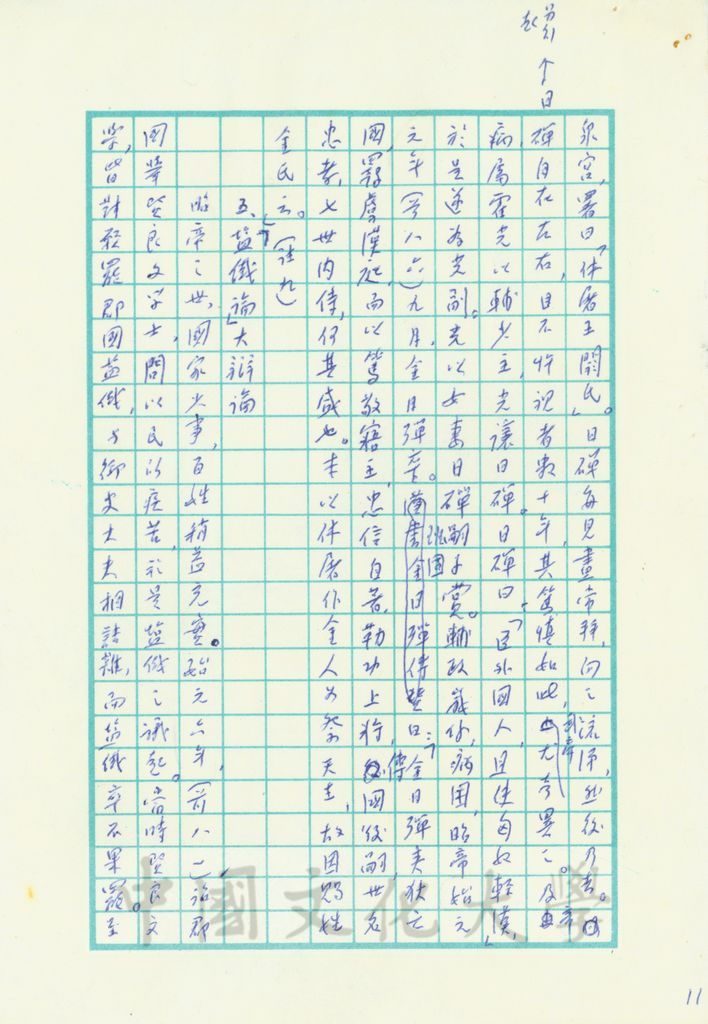 泉宮,署曰「休屠王閼氏。」日磾每見畫常拜,向之涕泣,然後乃去。
日磾自在左右,目不忤視者數十年,其篤慎如此,武帝尤奇異之。及帝
病,屬霍光以輔少主,光讓日磾。日磾曰:「臣外國人,且使匈奴輕漢」,
於是遂為光副。光以女妻日磾嗣子賞。輔政歲餘,病困,昭帝始元
元年(前八六)九月,金日磾卒。班固曰:「金日磾夷狄亡
國,羈虜漢庭,而以篤敬寤主,忠信自著,勒功上將,傳國後嗣,世名
忠孝,七世內侍,何其盛也。本以休屠作金人為祭天主,故因賜姓
金氏云。」(註九)
五、「鹽鐵論」大辯論
昭帝之世,國家少事,百姓稍益充實。始元六年,(前八一)詔郡
國舉賢良文學士,問以民所疾苦,於是鹽鐵之議起。當時賢良文
學,皆對願罷郡國鹽鐵,与御史大夫相詰難,而鹽鐵卒不果罷。至
11
中國文化大學